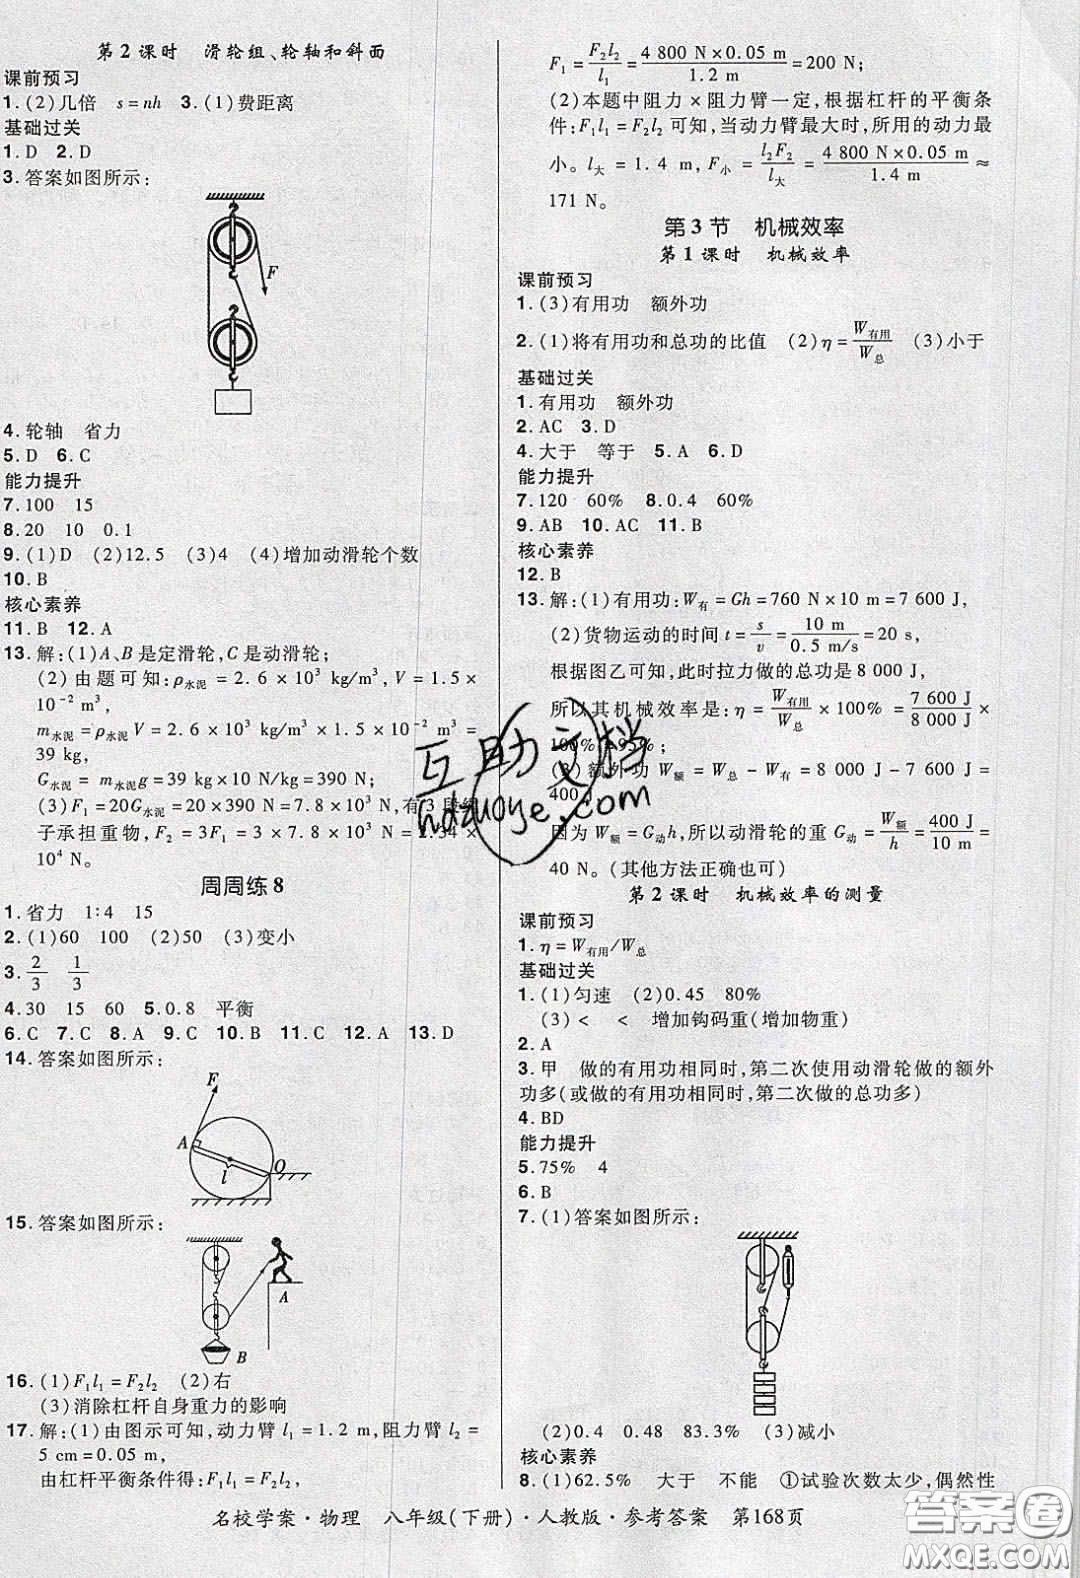 第2课时　滑轮组、轮轴和斜面
课前预习
1.(2)几倍　s=nh　3.(1)费距离
基础过关
1.D　2.D
3.答案如图所示:
F
4.轮轴　省力
5.D　6.C
能力提升
7.100　15
8.20　10　0.1
9.(1)D　(2)12.5　(3)4　(4)增加动滑轮个数
10.B
核心素养
11.B　12.A
13.解:(1)A、B是定滑轮,C是动滑轮;
(2)由题可知:ρ水泥=2.6×10³ kg/m³,V=1.5×
10⁻² m³,
m水泥=ρ水泥V=2.6×10³ kg/m³×1.5×10⁻² m³=
39 kg,
G水泥=m水泥g=39 kg×10 N/kg=390 N;
(3)F₁=20G水泥=20×390 N=7.8×10³ N,有3段绳
子承担重物,F₂=3F₁=3×7.8×10³ N=2.34×
10⁴ N。
周周练8
1.省力　1:4　15
2.(1)60　100　(2)50　(3)变小
3.2/3　1/3
4.30　15　60　5.0.8　平衡
6.C　7.C　8.A　9.C　10.C　11.C　12.A　13.D
14.答案如图所示:
F
A
O
l
15.答案如图所示:
A
B
16.(1)F₁l₁=F₂l₂　(2)右
(3)消除杠杆自身重力的影响
17.解:(1)由图示可知,动力臂l₁=1.2 m,阻力臂l₂=
5 cm=0.05 m,
由杠杆平衡条件得:F₁l₁=F₂l₂,
F₁=F₂l₂/l₁=4 800 N×0.05 m/1.2 m=200 N;
(2)本题中阻力×阻力臂一定,根据杠杆的平衡条
件:F₁l₁=F₂l₂可知,当动力臂最大时,所用的动力最
小。l大=1.4 m,F小=l₂F₂/l大=4 800 N×0.05 m/1.4 m≈
171 N。
第3节　机械效率
第1课时　机械效率
课前预习
1.(3)有用功　额外功
2.(1)将有用功和总功的比值　(2)η=W有用/W总　(3)小于
基础过关
1.有用功　额外功
2.AC　3.D
4.大于　等于　5.A　6.D
能力提升
7.120　60%　8.0.4　60%
9.AB　10.AC　11.B
核心素养
12.B
13.解:(1)有用功:W有=Gh=760 N×10 m=7 600 J,
(2)货物运动的时间t=s/v=10 m/0.5 m/s=20 s,
根据图乙可知,此时拉力做的总功是8 000 J,
所以其机械效率是:η=W有用/W总×100%=7 600 J/8 000 J×
100%=95%;
(3)额外功W额=W总-W有用=8 000 J-7 600 J=
400 J
因为W额=G动h,所以动滑轮的重G动=W额/h=400 J/10 m=
40 N。(其他方法正确也可)
第2课时　机械效率的测量
课前预习
1.η=W有用/W总
基础过关
1.(1)匀速　(2)0.45　80%
(3)<　<　增加钩码重(增加物重)
2.A
3.甲　做的有用功相同时,第二次使用动滑轮做的额外
功多(或做的有用功相同时,第二次做的总功多)
4.BD
能力提升
5.75%　4
6.B
7.(1)答案如图所示:
(2)0.4　0.48　83.3%　(3)减小
核心素养
8.(1)62.5%　大于　不能　①试验次数太少,偶然性
名校学案·物理　八年级(下册)·人教版·参考答案　第168页
互助文档
hdzuoye.com
答案圈
MXQE.COM